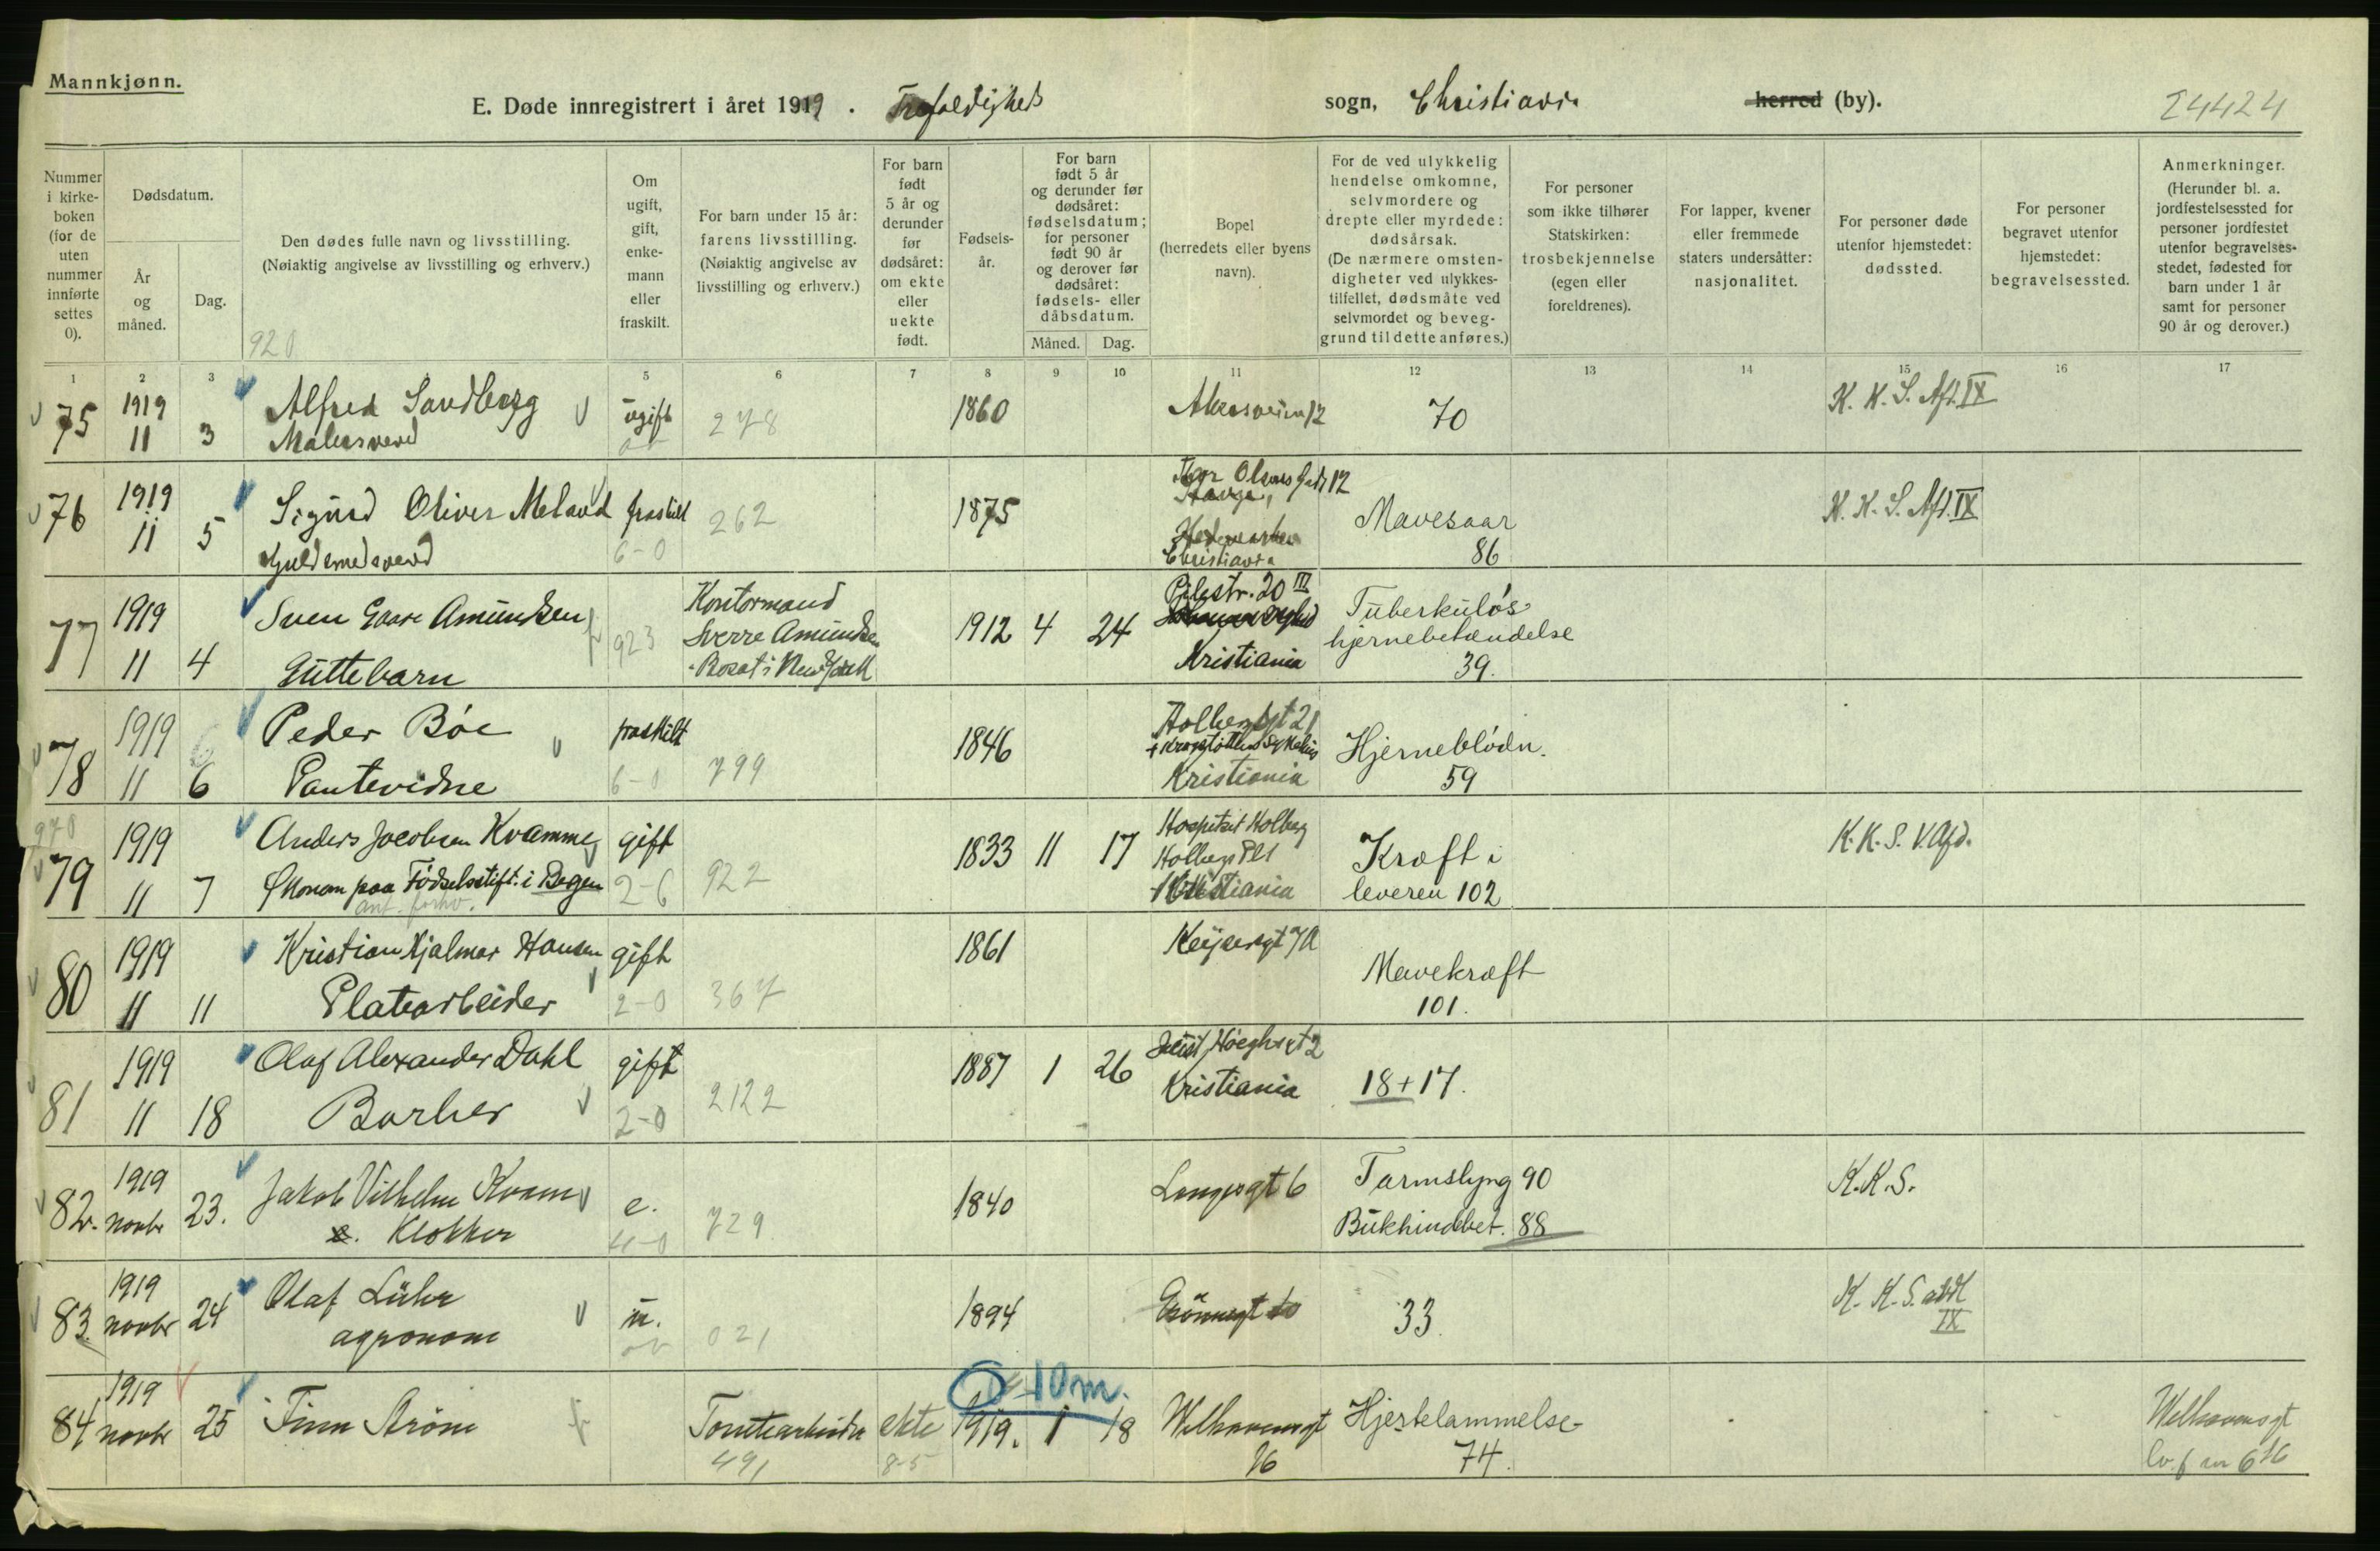 Mannkjønn.
E. Døde innregistrert i året 1919. Trefoldigheds sogn, Christiania herred (by). 24424
Nummer i kirke-boken (for de uten nummer innførte settes 0).
Dødsdatum.
År og måned.
Dag.
Den dødes fulle navn og livsstilling.
(Nøiaktig angivelse av livsstilling og erhverv.)
920
Om ugift, gift, enke-mann eller fraskilt.
For barn under 15 år: farens livsstilling.
(Nøiaktig angivelse av livsstilling og erhverv.)
For barn født 5 år og derunder før dødsåret: om ekte eller uekte født.
Fødsels-år.
For barn født 5 år og derunder før dødsåret: fødselsdatum; for personer født 90 år og derover før dødsåret: fødsels- eller dåbsdatum.
Måned. Dag.
Bopel
(herredets eller byens navn).
For de ved ulykkelig hendelse omkomne, selvmordere og drepte eller myrdede: dødsårsak.
(De nærmere omsten-digheter ved ulykkes-tilfellet, dødsmåte ved selvmordet og beveg-grund til dette anføres.)
For personer som ikke tilhører Statskirken: trosbekjennelse (egen eller foreldrenes).
For lapper, kvener eller fremmede staters undersåtter: nasjonalitet.
For personer døde utenfor hjemstedet: dødssted.
For personer begravet utenfor hjemstedet: begravelsessted.
Anmerkninger.
(Herunder bl. a. jordfestelsessted for personer jordfestet utenfor begravelses-stedet, fødested for barn under 1 år samt for personer 90 år og derover.)
1 2 3 5 6 7 8 9 10 11 12 13 14 15 16 17
75 1919 11 3 Alfred Sandberg ugift 278 1860 Akersveien 12 70 K. K. S. Afd. IX
Malersvend
76 1919 11 5 Sigurd Oliver Meland fraskilt 262 1875 Thor Olsens Gade 12
Guldsmedsvend 6-0 Christiania Mavesaar 86 K. K. S. Afd. IX
77 1919 11 4 Sven Gaare Amundsen 923 Kontormand
Sverre Amundsen 1912 4 24 Pilestr. 20 III
Guttebarn Kristiania Tuberkuløs
hjernebetændelse
39.
78 1919 11 6 Peder Böe fraskilt 1846 Holbergsgt 21
Pantevidne 6-0 799 Kristiania Hjerneblödn.
59
970
79 1919 11 7 Anders Jacobsen Kvamme gift 922 1833 11 17 Hospitset Holberg
Økonom paa Födselsstift. i Bergen 2-6 Holbergs Pl 1
Kristiania Kræft i
leveren 102 K. K. S. V. Afd.
80 1919 11 11 Kristian Hjalmar Hansen gift 1861 Keysersgt 7A
Platearbeider 2-0 367 Mavekræft
101.
81 1919 11 18 Olaf Alexander Dahl gift 1887 1 26 Just Høeghs gt 2
Barber 2-0 2122 Kristiania 18+17.
82. 1919 novbr 23. Jakob Vilhelm Kvam e. 1840 Langesgt 6 Tarmslyng 90 K. K. S.
Klokker 4-0 729 Bukhindebet. 88
83. 1919 novbr 24 Olaf Lühr u. 1894 Grönnegt 10 33 K. K. S. avd IX
agronom 021
0-10 m.
84 1919 novbr 25 Finn Ström Tomtearbeider ekte 1919. 1 18 Welhavensgt Hjertelammelse Welhavensgt
491 8-5 16 74.